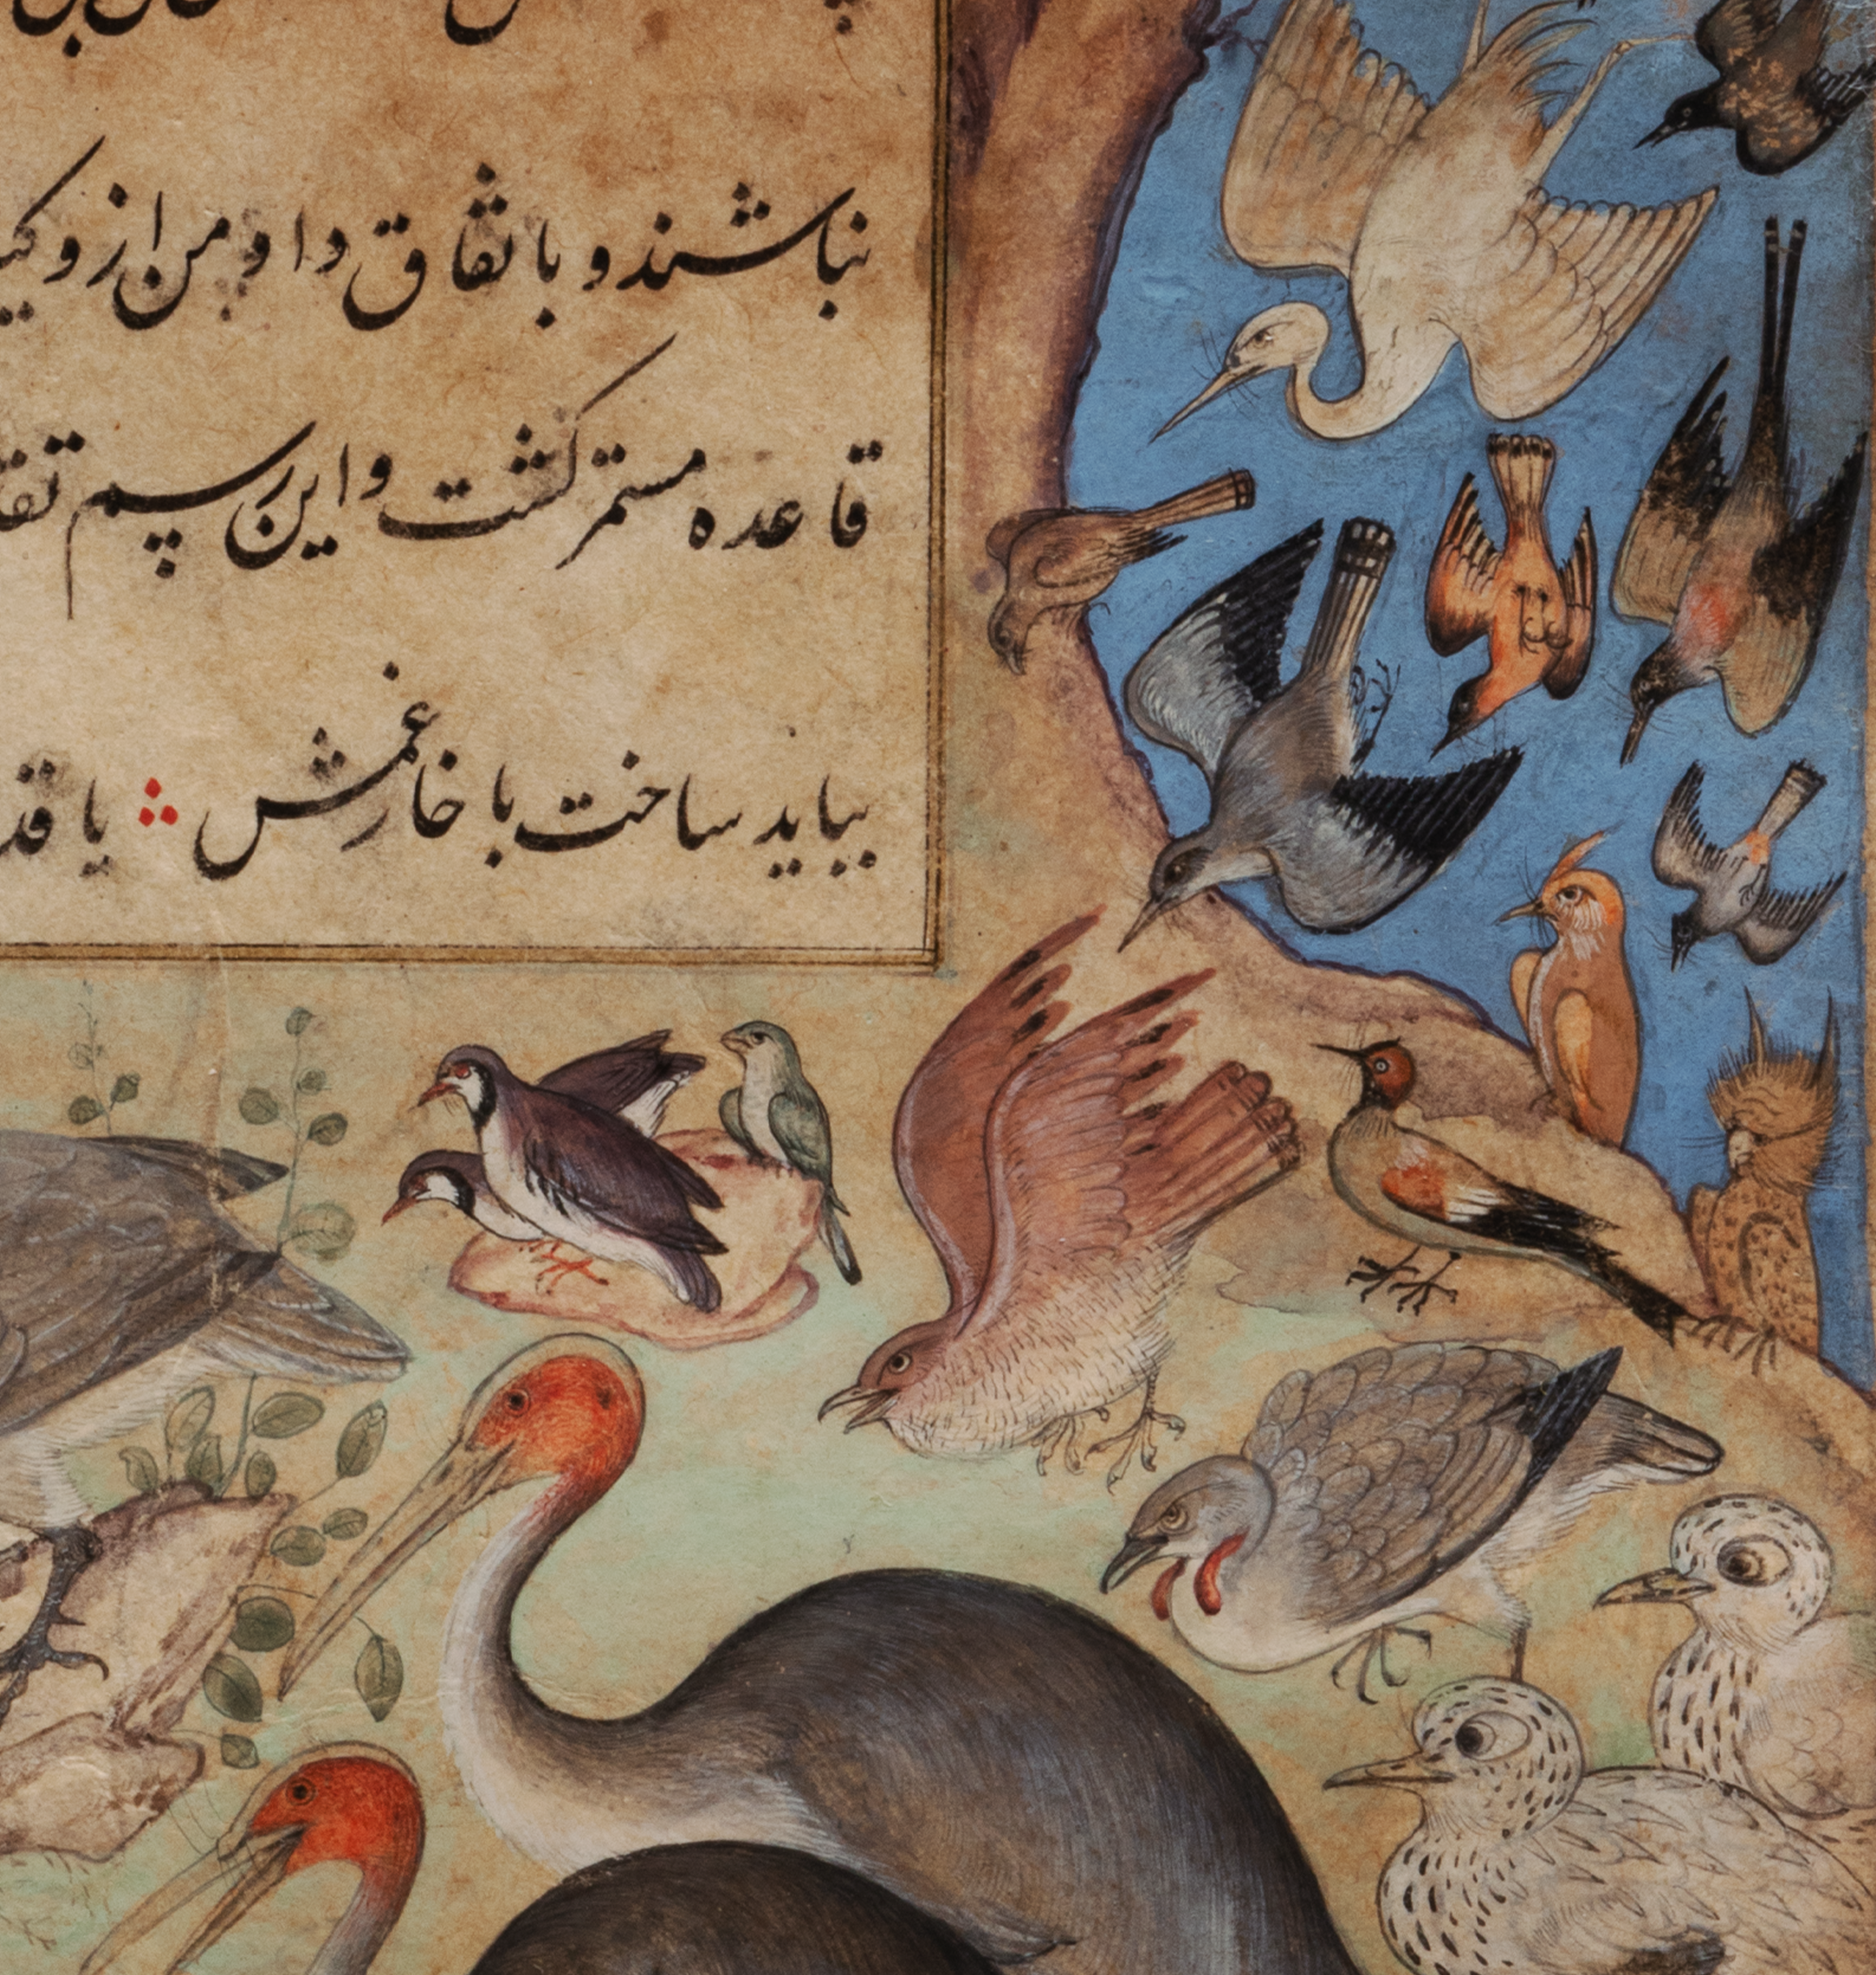 نباشند و باتفاق دا و من از و
قاعده مستمر گشت و این رسم
بباید ساخت با خار غمش ؞ یا